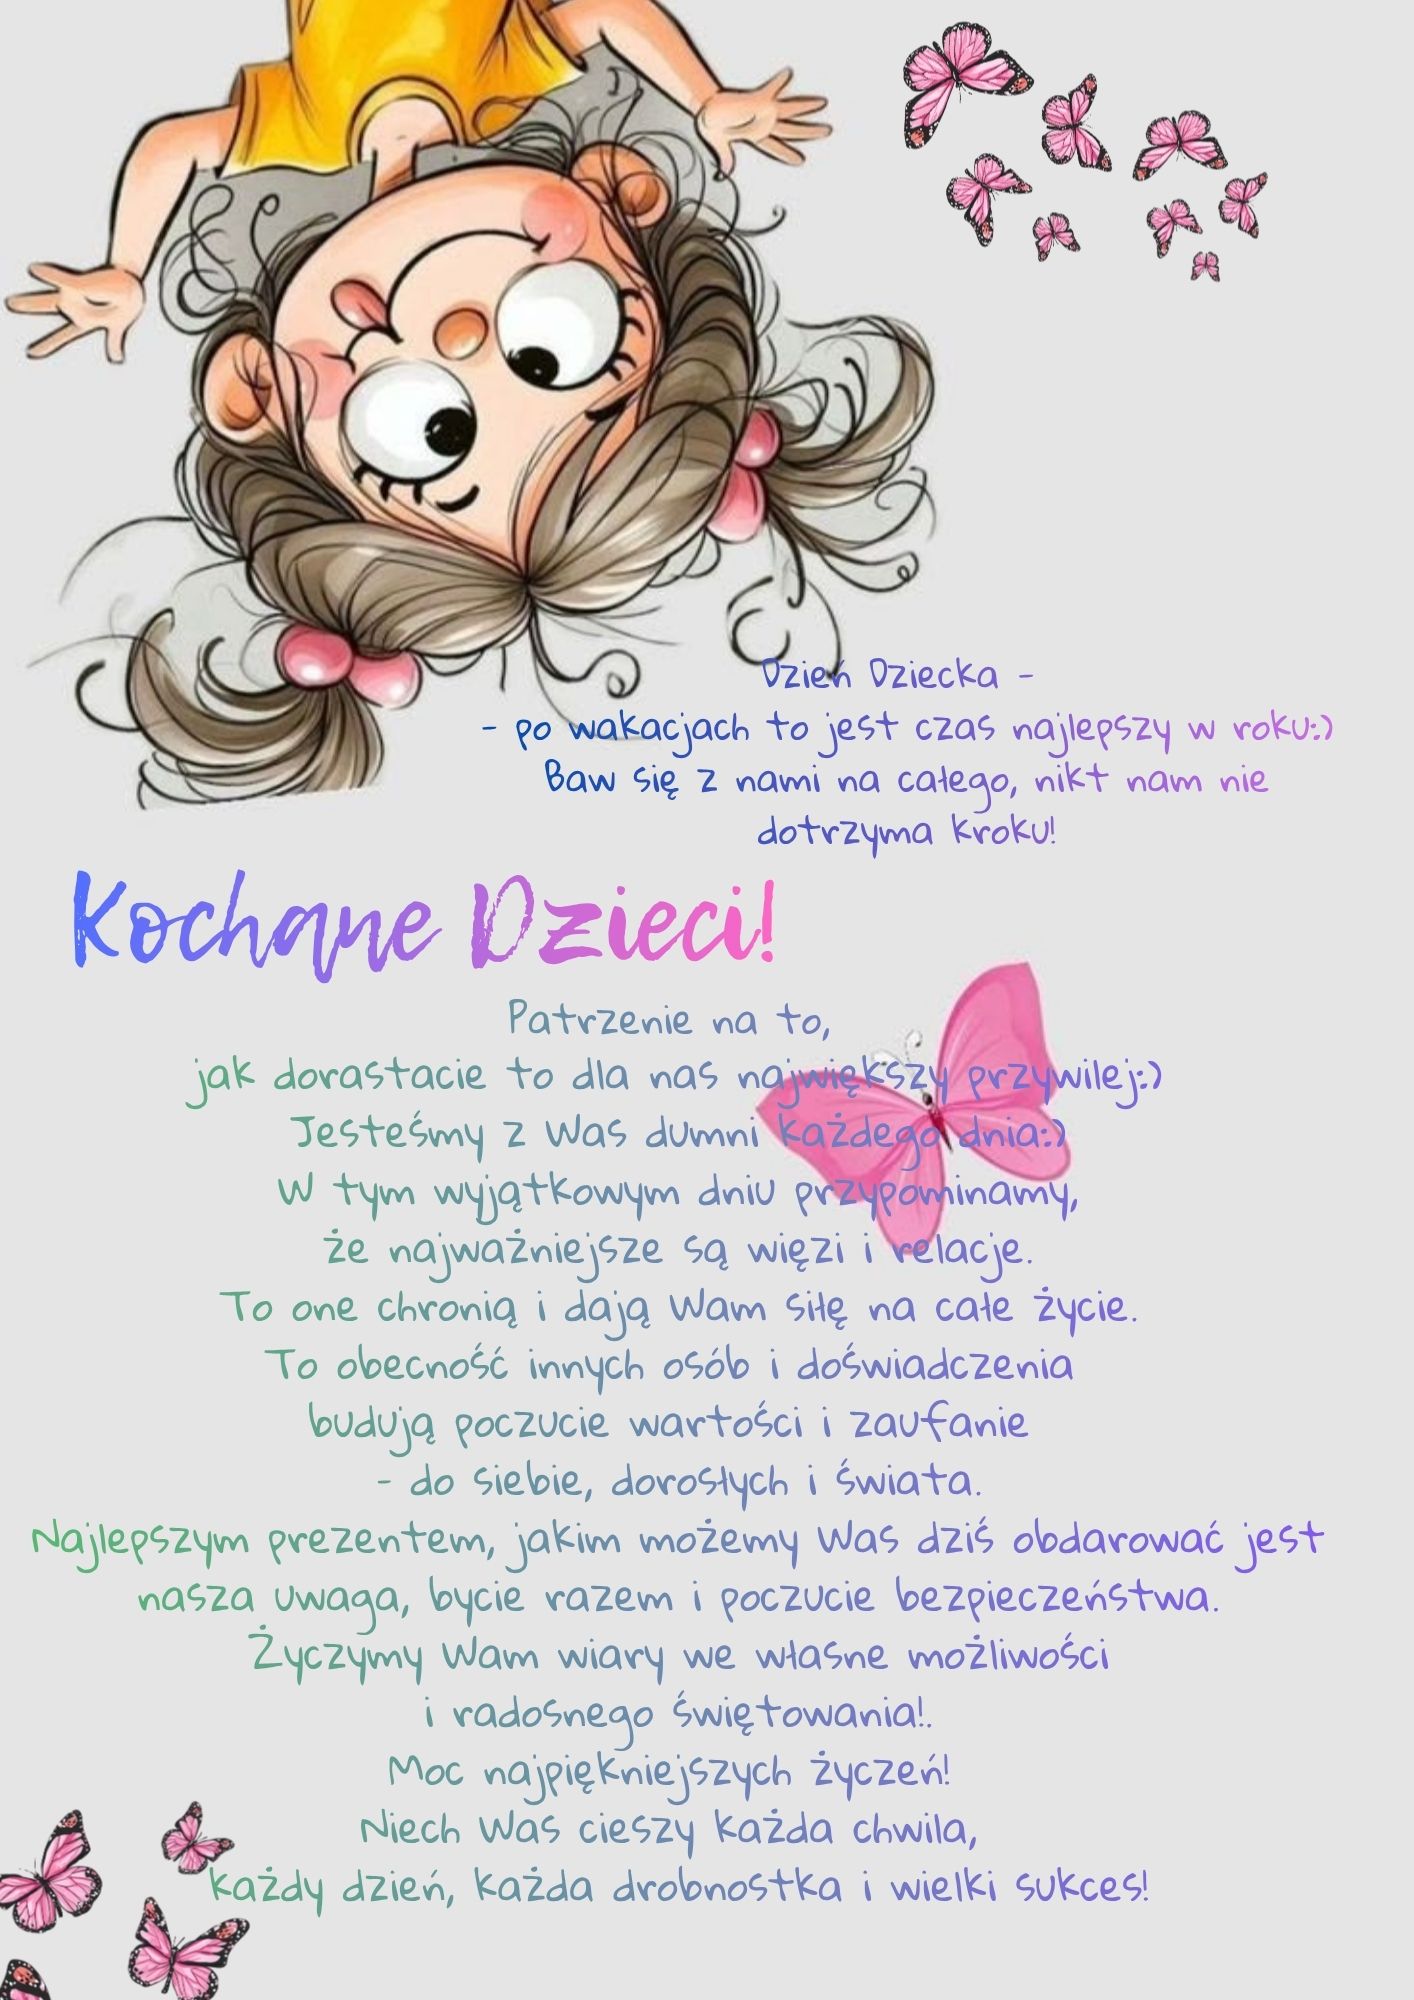 Dzień Dziecka -
- po wakacjach to jest czas najlepszy w roku:)
Baw się z nami na całego, nikt nam nie
dotrzyma kroku!
Kochane Dzieci!
Patrzenie na to,
jak dorastacie to dla nas największy przywilej:)
Jesteśmy z Was dumni każdego dnia:)
W tym wyjątkowym dniu przypominamy,
że najważniejsze są więzi i relacje.
To one chronią i dają Wam siłę na całe życie.
To obecność innych osób i doświadczenia
budują poczucie wartości i zaufanie
- do siebie, dorosłych i świata.
Najlepszym prezentem, jakim możemy Was dziś obdarować jest
nasza uwaga, bycie razem i poczucie bezpieczeństwa.
Życzymy Wam wiary we własne możliwości
i radosnego świętowania!.
Moc najpiękniejszych życzeń!
Niech Was cieszy każda chwila,
każdy dzień, każda drobnostka i wielki sukces!